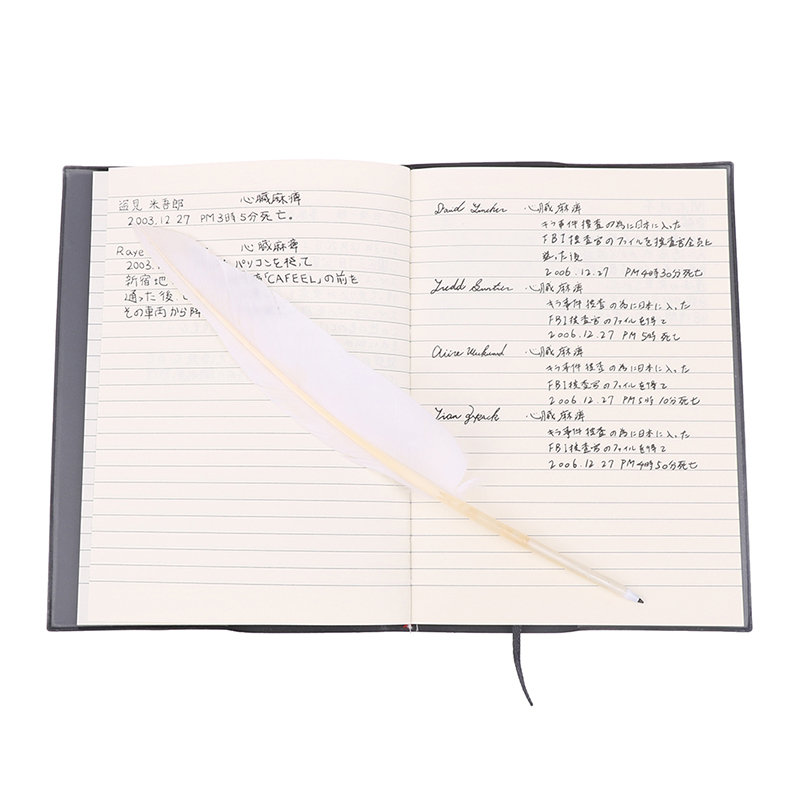 米吾郎 心臓麻痺
2003.12 27 PM3時5分死亡。
Raye 心臓麻痺
2003. パソコンを捨て
新宿地 「CAFEEL」の前を
通った後、
その車両から
心臓麻痺
キラ事件捜査の為に日本に入った
FBI捜査官のファイルを捜査官全員と
た後
2006.12.27 PM4時30分死亡
心臓麻痺
キラ事件捜査の為に日本に入った
FBI捜査官のファイルを得て
2006.12.27 PM5時死亡
心臓麻痺
キラ事件捜査の為に日本に入った
FBI捜査官のファイルを得て
2006.12.27 PM5時10分死亡
心臓麻痺
キラ事件捜査の為に日本に入った
FBI捜査官のファイルを得て
2006.12.27 PM4時50分死亡